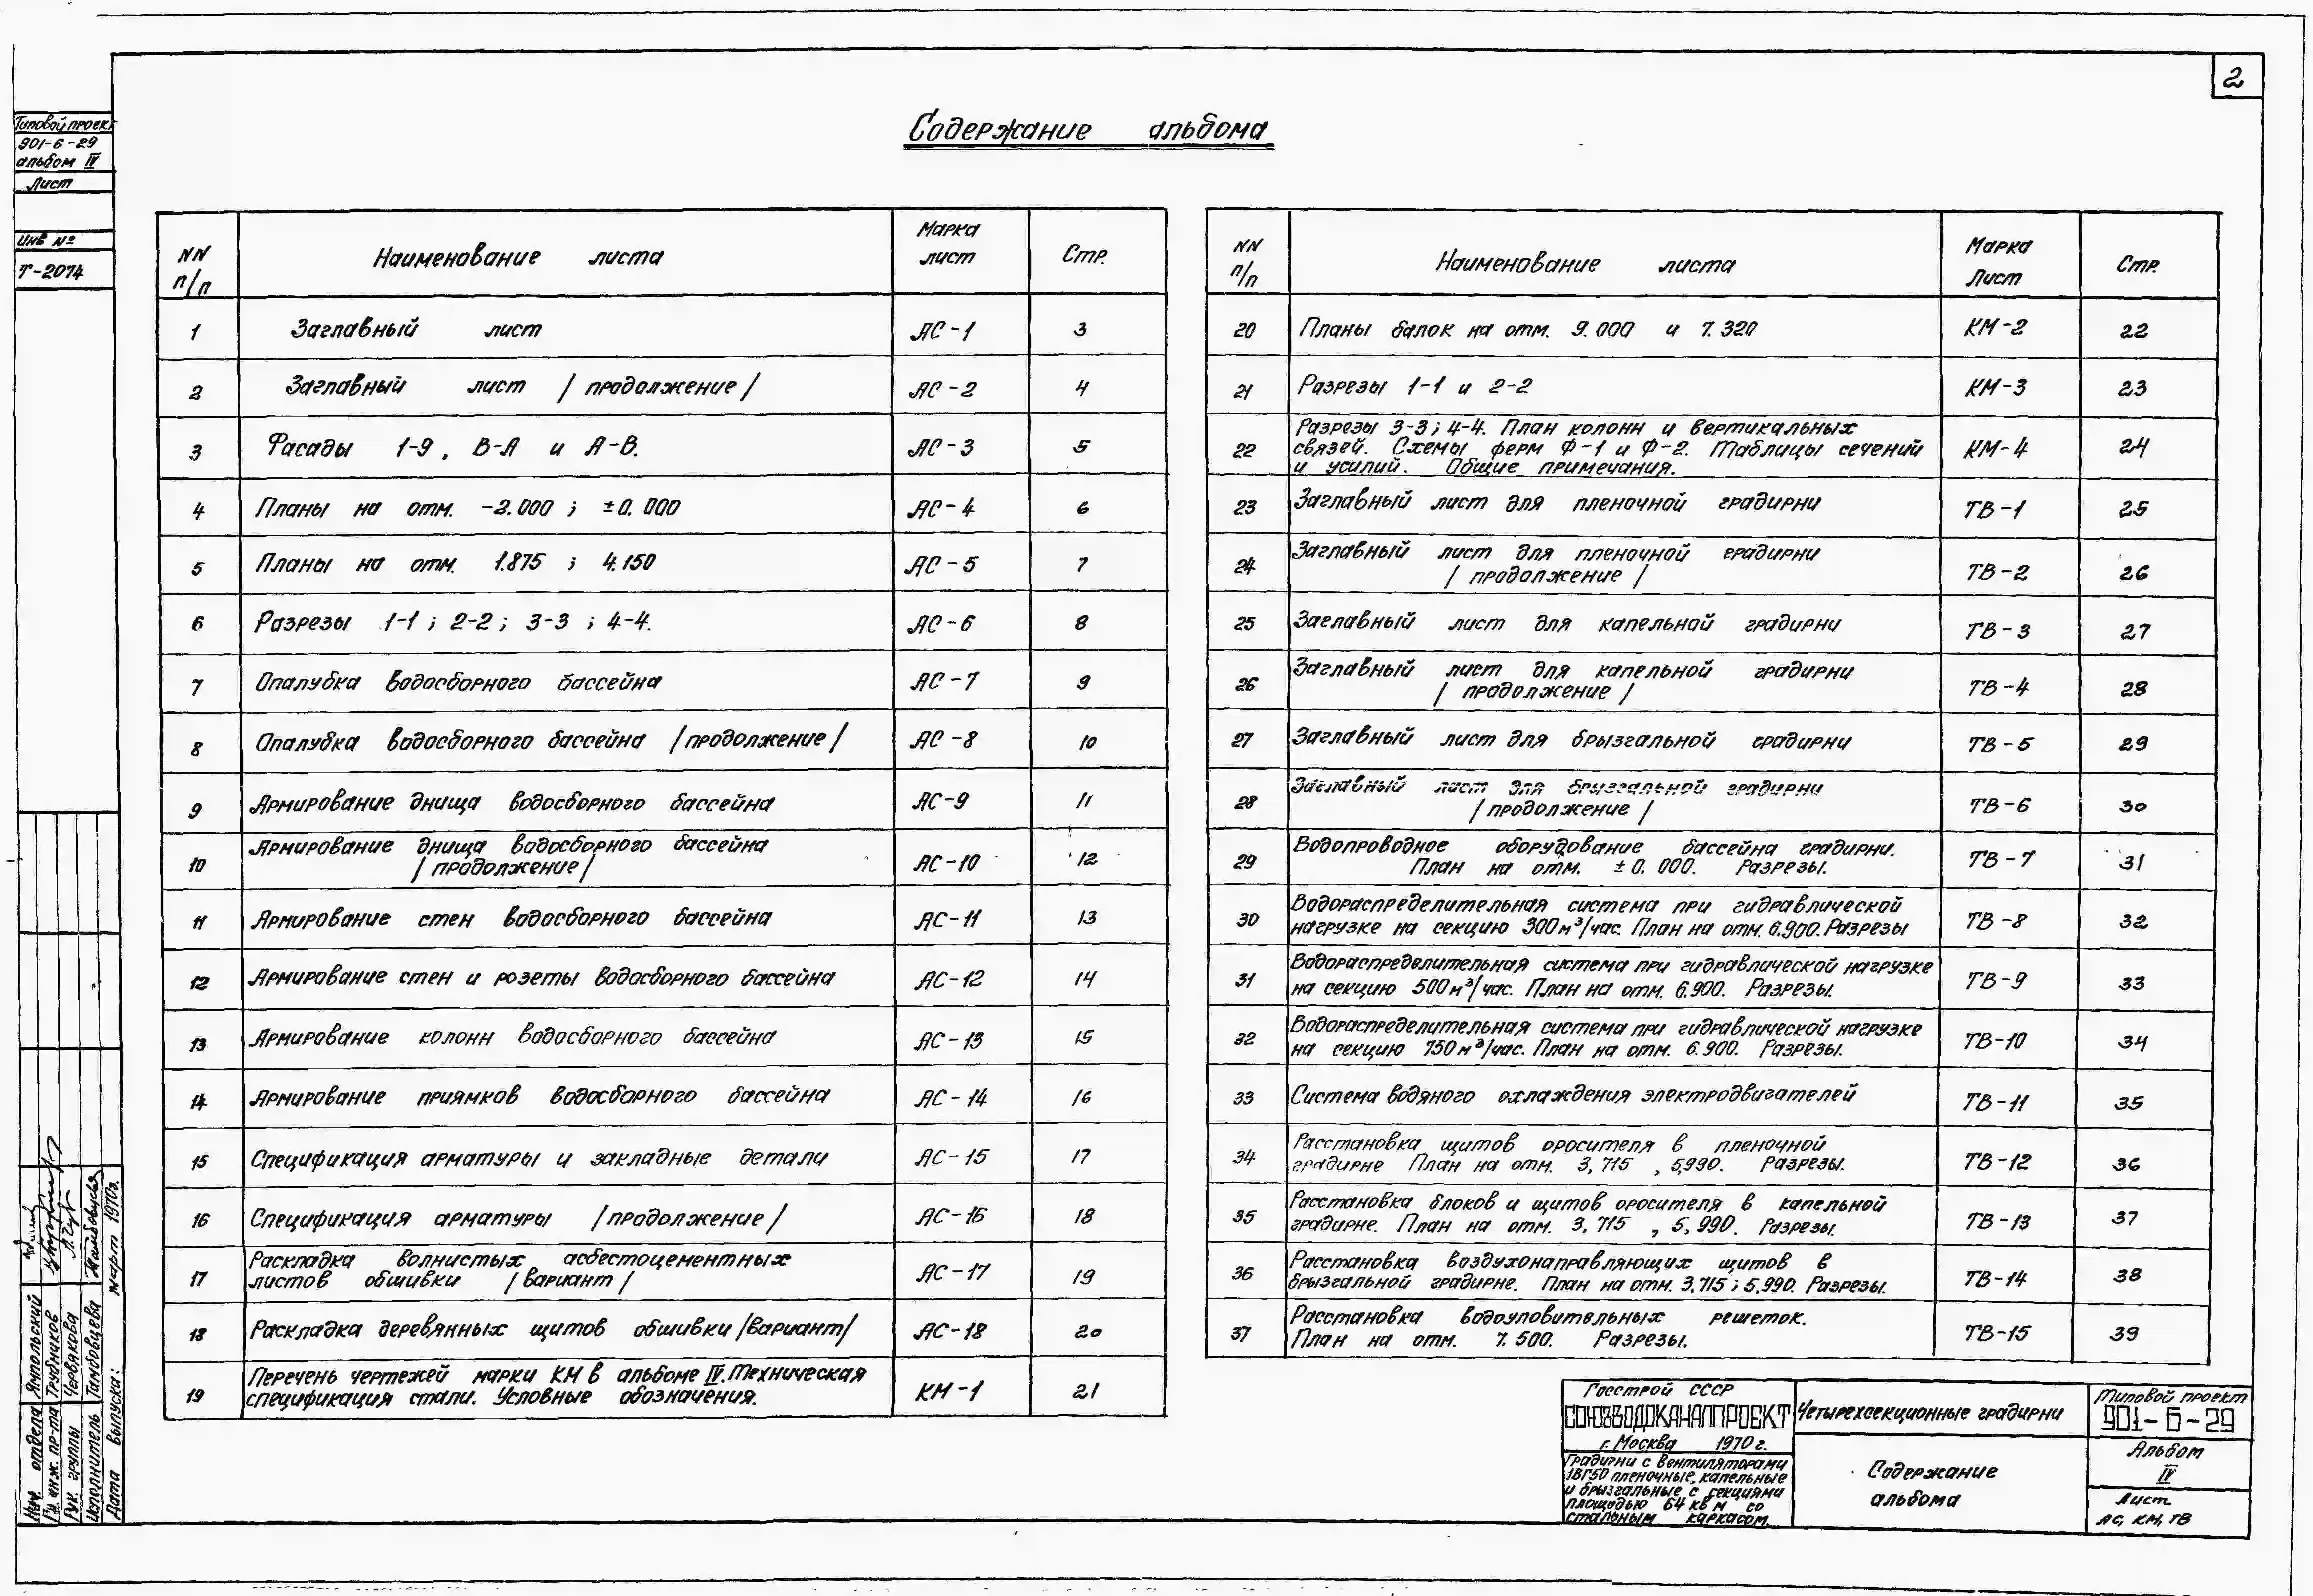 2
Типовой проект
901-6-29
альбом IV
Лист
Инв №
Т-2074
Содержание альбома
NN п/п Наименование листа Марка лист Стр.
1 Заглавный лист АС-1 3
2 Заглавный лист /продолжение/ АС-2 4
3 Фасады 1-9, В-А и А-В. АС-3 5
4 Планы на отм. -2.000; ±0.000 АС-4 6
5 Планы на отм. 1.875; 4.150 АС-5 7
6 Разрезы 1-1; 2-2; 3-3; 4-4. АС-6 8
7 Опалубка водосборного бассейна АС-7 9
8 Опалубка водосборного бассейна /продолжение/ АС-8 10
9 Армирование днища водосборного бассейна АС-9 11
10 Армирование днища водосборного бассейна
/продолжение/ АС-10 12
11 Армирование стен водосборного бассейна АС-11 13
12 Армирование стен и розеты водосборного бассейна АС-12 14
13 Армирование колонн водосборного бассейна АС-13 15
14 Армирование приямков водосборного бассейна АС-14 16
15 Спецификация арматуры и закладные детали АС-15 17
16 Спецификация арматуры /продолжение/ АС-16 18
17 Раскладка волнистых асбестоцементных
листов обшивки /вариант/ АС-17 19
18 Раскладка деревянных щитов обшивки /вариант/ АС-18 20
19 Перечень чертежей марки КМ в альбоме IV. Техническая
спецификация стали. Условные обозначения. КМ-1 21
NN п/п Наименование листа Марка Лист Стр.
20 Планы балок на отм. 9.000 и 7.320 КМ-2 22
21 Разрезы 1-1 и 2-2 КМ-3 23
22 Разрезы 3-3; 4-4. План колонн и вертикальных
связей. Схемы ферм Ф-1 и Ф-2. Таблицы сечений
и усилий. Общие примечания. КМ-4 24
23 Заглавный лист для пленочной градирни ТВ-1 25
24 Заглавный лист для пленочной градирни
/продолжение/ ТВ-2 26
25 Заглавный лист для капельной градирни ТВ-3 27
26 Заглавный лист для капельной градирни
/продолжение/ ТВ-4 28
27 Заглавный лист для брызгальной градирни ТВ-5 29
28 Заглавный лист для брызгальной градирни
/продолжение/ ТВ-6 30
29 Водопроводное оборудование бассейна градирни.
План на отм. ±0.000. Разрезы. ТВ-7 31
30 Водораспределительная система при гидравлической
нагрузке на секцию 300м³/час. План на отм. 6.900. Разрезы ТВ-8 32
31 Водораспределительная система при гидравлической нагрузке
на секцию 500м³/час. План на отм. 6.900. Разрезы. ТВ-9 33
32 Водораспределительная система при гидравлической нагрузке
на секцию 750м³/час. План на отм. 6.900. Разрезы. ТВ-10 34
33 Система водяного охлаждения электродвигателей ТВ-11 35
34 Расстановка щитов оросителя в пленочной
градирне План на отм. 3,715, 5,990. Разрезы. ТВ-12 36
35 Расстановка блоков и щитов оросителя в капельной
градирне. План на отм. 3,715, 5,990. Разрезы. ТВ-13 37
36 Расстановка воздухонаправляющих щитов в
брызгальной градирне. План на отм. 3,715; 5,990. Разрезы. ТВ-14 38
37 Расстановка водоуловительных решеток.
План на отм. 7.500. Разрезы. ТВ-15 39
Нач. отдела Ямпольский
Гл. инж. пр-та Трубников
Рук. группы Червякова
Исполнитель Тамбовцева
Дата выпуска: март 1970г.
Госстрой СССР
СОЮЗВОДОКАНАЛПРОЕКТ
г. Москва 1970г.
Градирни с вентиляторами
1ВГ50 пленочные, капельные
и брызгальные с секциями
площадью 64 кв м со
стальным каркасом.
Четырехсекционные градирни
Содержание
альбома
Типовой проект
901-6-29
Альбом
IV
Лист
АС, КМ, ТВ